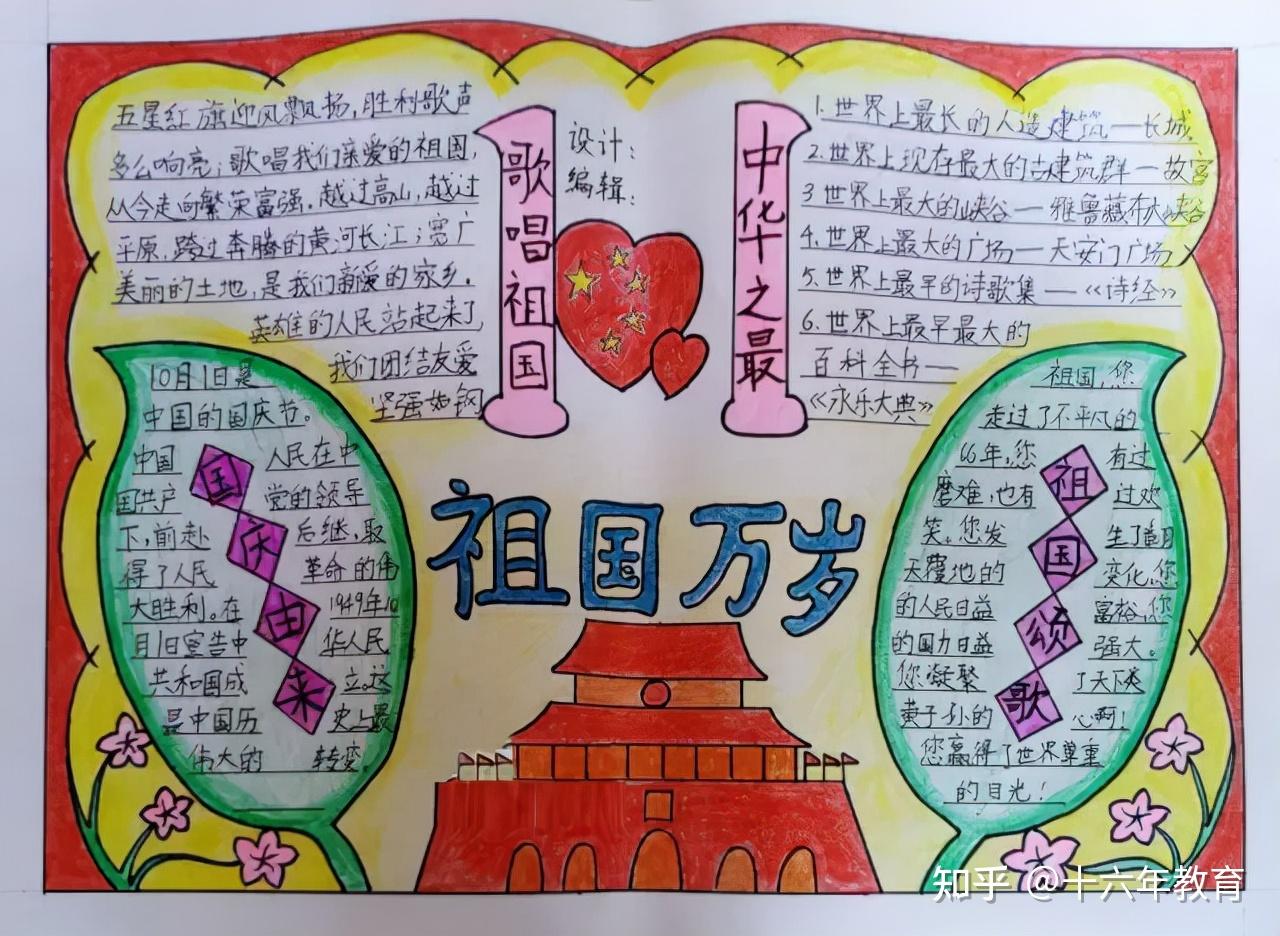 五星红旗迎风飘扬,胜利歌声
多么响亮;歌唱我们亲爱的祖国,
从今走向繁荣富强。越过高山,越过
平原,跨过奔腾的黄河长江;宽广
美丽的土地,是我们亲爱的家乡。
英雄的人民站起来了
我们团结友爱
坚强如钢
歌唱祖国
设计:
编辑:
中华之最
1.世界上最长的人造建筑—长城.
2.世界上现存最大的古建筑群—故宫
3世界上最大的峡谷—雅鲁藏布大峡谷
4.世界上最大的广场—天安门广场
5.世界上最早的诗歌集—《诗经》
6.世界上最早最大的
百科全书—
《永乐大典》
祖国万岁
10月1日是
中国的国庆节。
中国 人民在中
国共产 党的领导
下,前赴 后继,取
得了人民 革命的伟
大胜利。在 1949年10
月1日宣告中 华人民
共和国成 立。这
是中国历 史上最
伟大的 转变。
国庆由来
祖国,您
走过了不平凡的
66年,您 有过
磨难,也有 过欢
笑。您发 生了翻
天覆地的 变化,您
的人民日益 富裕,您
的国力日益 强大。
您凝聚 了天下炎
黄子孙的 心啊!
您赢得了世界尊重
的目光!
祖国颂歌
知乎 @十六年教育